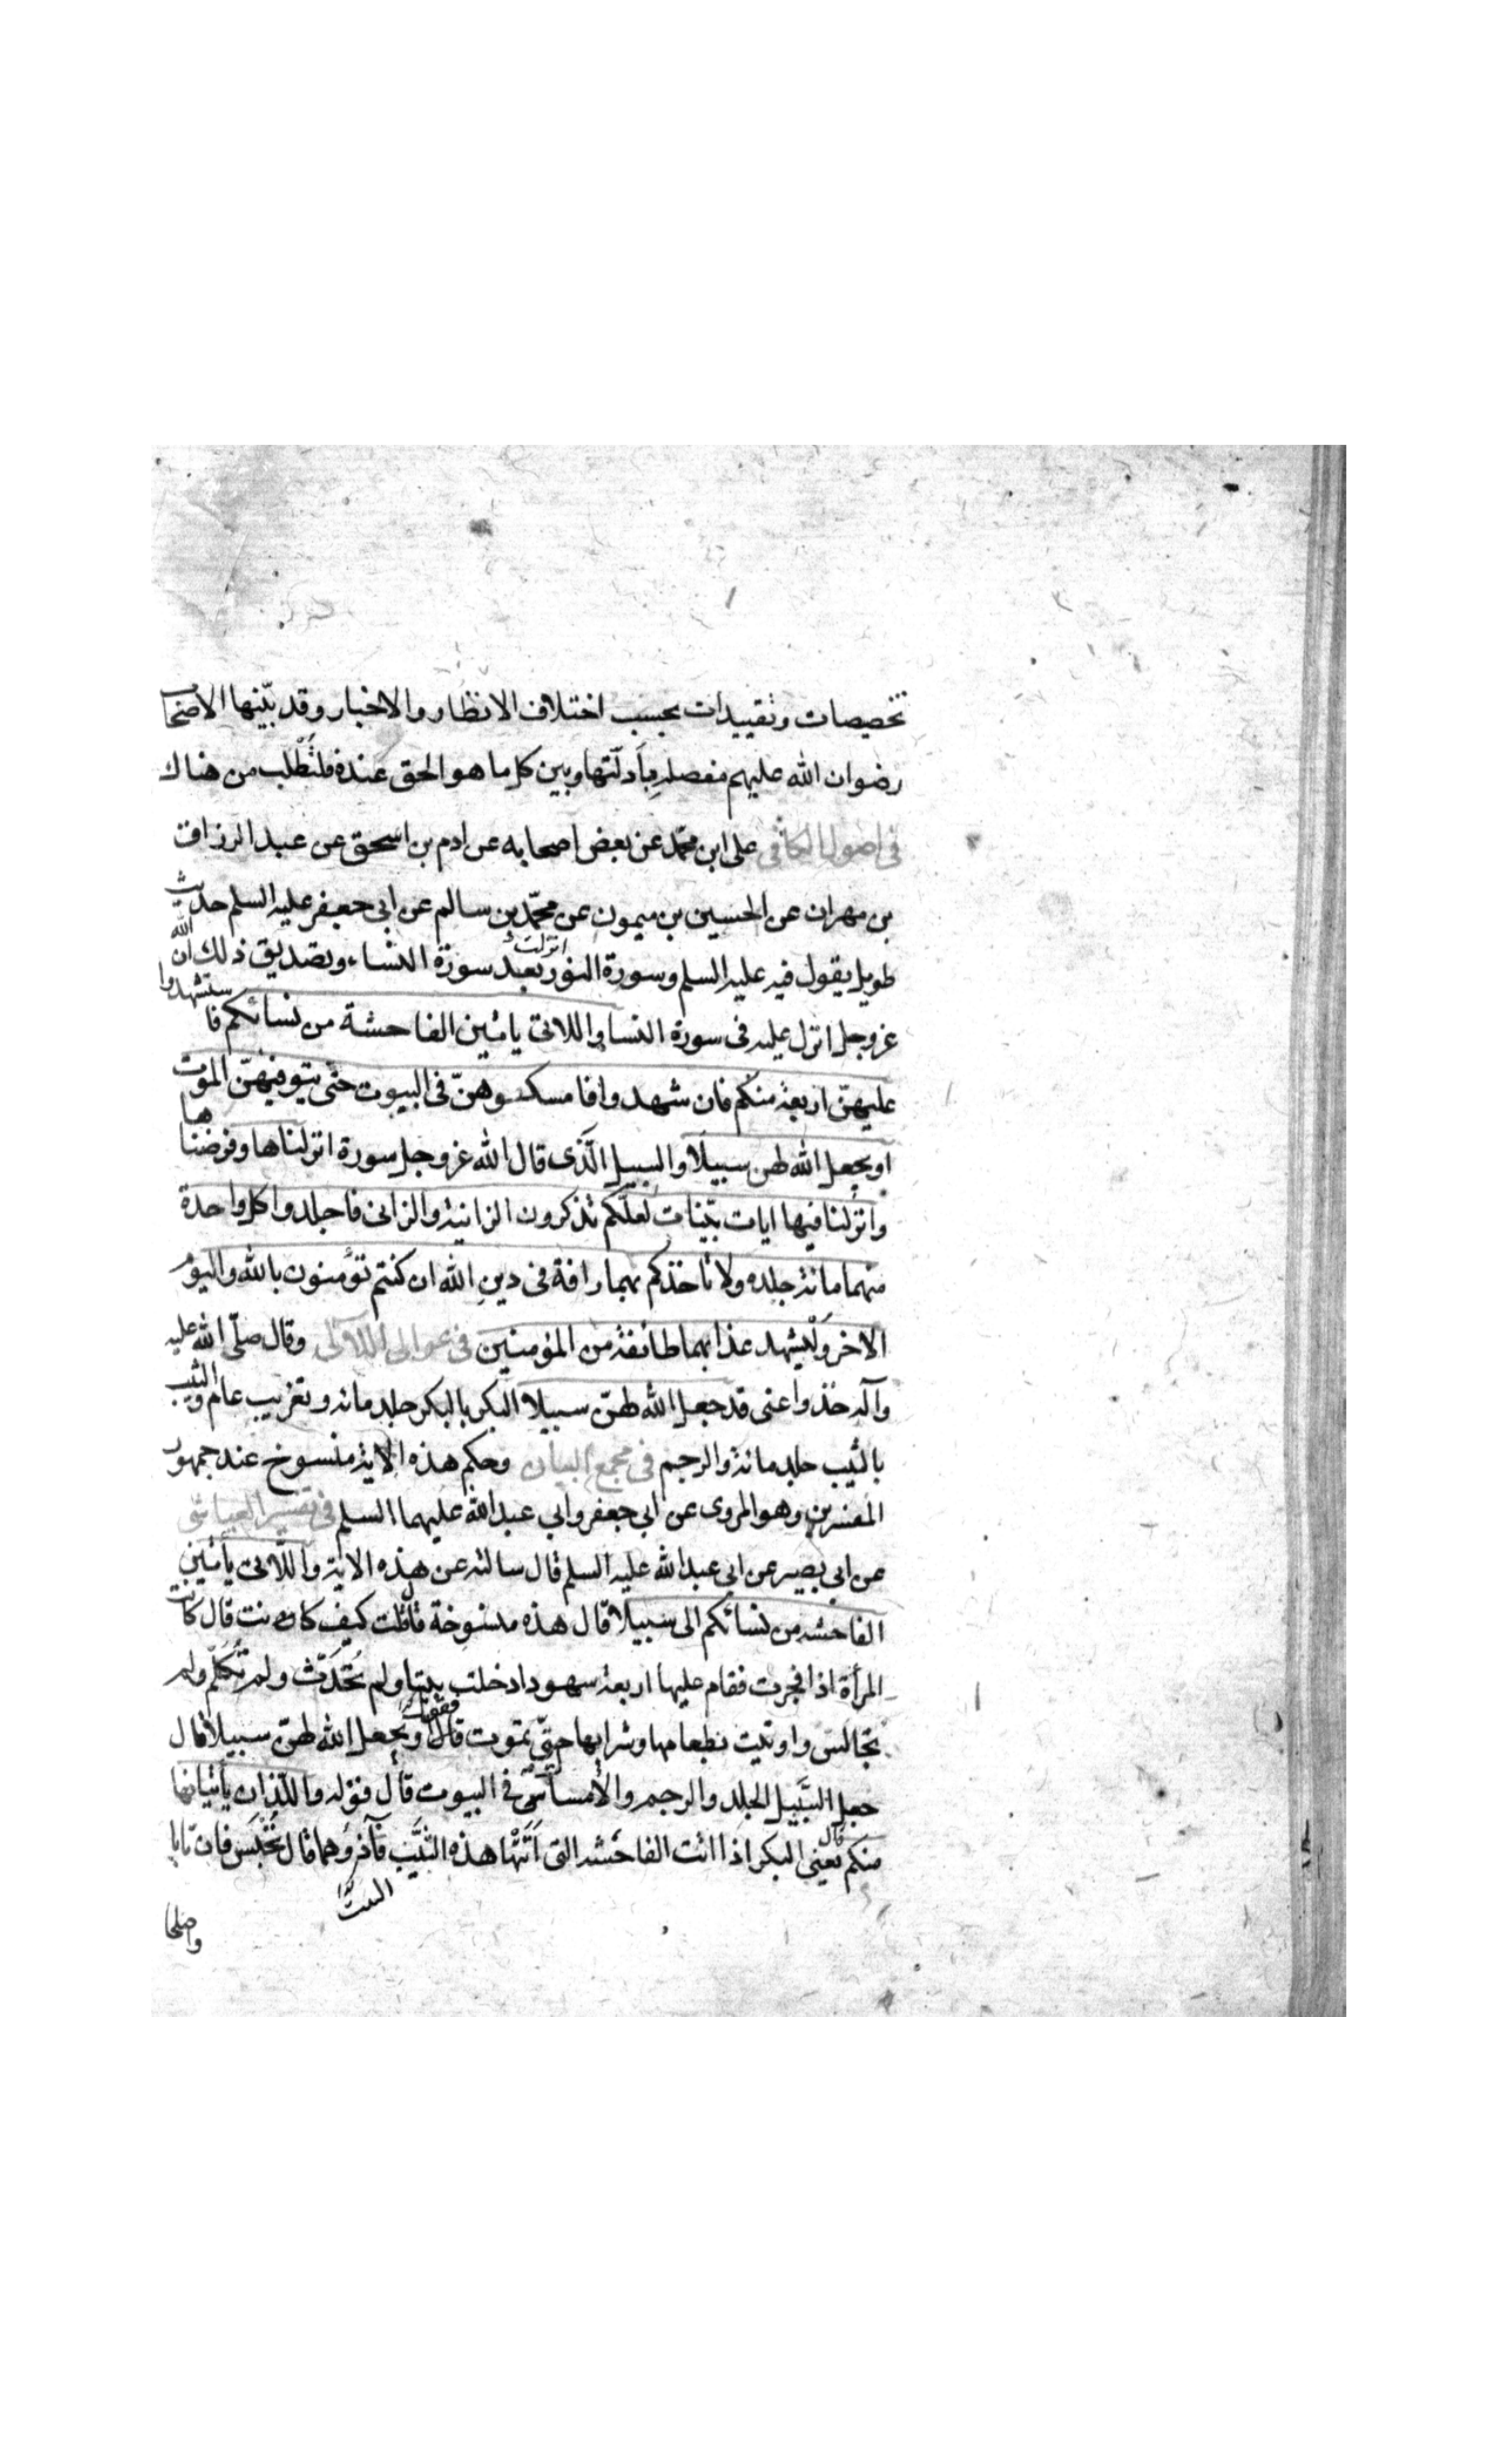 تخصيصات وتقييدات بحسب اختلاف الانظار والاخبار وقد بيّنها الاصحاب
رضوان الله عليهم مفصلة بِأَدلّتها وبين كل ما هو الحق عنده فلتُطْلب من هناك
فى اصول الكافى على ابن محمّد عن بعض اصحابه عن ادم بن اسحق عن عبد الرزاق
بن مهران عن الحسين بن ميمون عن محمّد بن سالم عن ابى جعفر عليه السلم حديث
طويل يقول فيه عليه السلم وسورة النور انزلت بعد سورة النساء وتصديق ذلك ان الله
عز وجل انزل عليه فى سورة النساء واللاتى ياتين الفاحشة من نسائكم فا ستشهدوا
عليهنّ اربعة منكم فان شهدوا فا مسكوهنّ فى البيوت حتى يتوفيهنّ الموت
او يجعل الله لهن سبيلا والسبيل الَّذى قال الله عز وجل سورة انزلناها وفرضنا ها
وانزلنا فيها ايات بيّنات لعلّكم تذكرون الزانية والزانى فاجلدوا كل واحدة
منهما مائة جلده ولا تاخذكم بهما رافة فى دينِ الله ان كنتم تؤمنون بالله واليوم
الاخر وَلْيشهد عذابهما طائفة من المؤمنين فى عوالى اللآلى وقال صلّى الله عليه
وآله خذوا عنى قد جعل الله لهنّ سبيلا البكر بالبكر جلد مائة وتغريب عام والثيب
بالثيب جلد مائة والرجم فى مجمع البيان وحكم هذه الاية منسوخ عند جمهور
المفسرين وهو المروى عن ابى جعفر وابى عبد الله عليهما السلم فى تفسير العياشى
عن ابى بصير عن ابى عبد الله عليه السلم قال سالته عن هذه الاية واللّاتى يأتين
الفاحشه من نسائكم الى سبيلا قال هذه منسوخة قال قلت كيف كانت قال كانت
المرأة اذا فجرت فقام عليها اربعة سهود ادخلت بيتا ولم تُحَدّث ولم تُكلّم ولم
تجالس واوتيت بطعامها وشرابها حتّى تموت قلت فقوله ويجعل الله لهنّ سبيلا قال
جعل السَّبيل الجلد والرجم والأمساك فى البيوت قال قوله واللذان يأتيانها
منكم قال يعنى البكر اذا اتت الفاحشه التى أَتَتْها هذه الثيّب فآذوهما قال تُحْبَس فان تابا
واصلحا